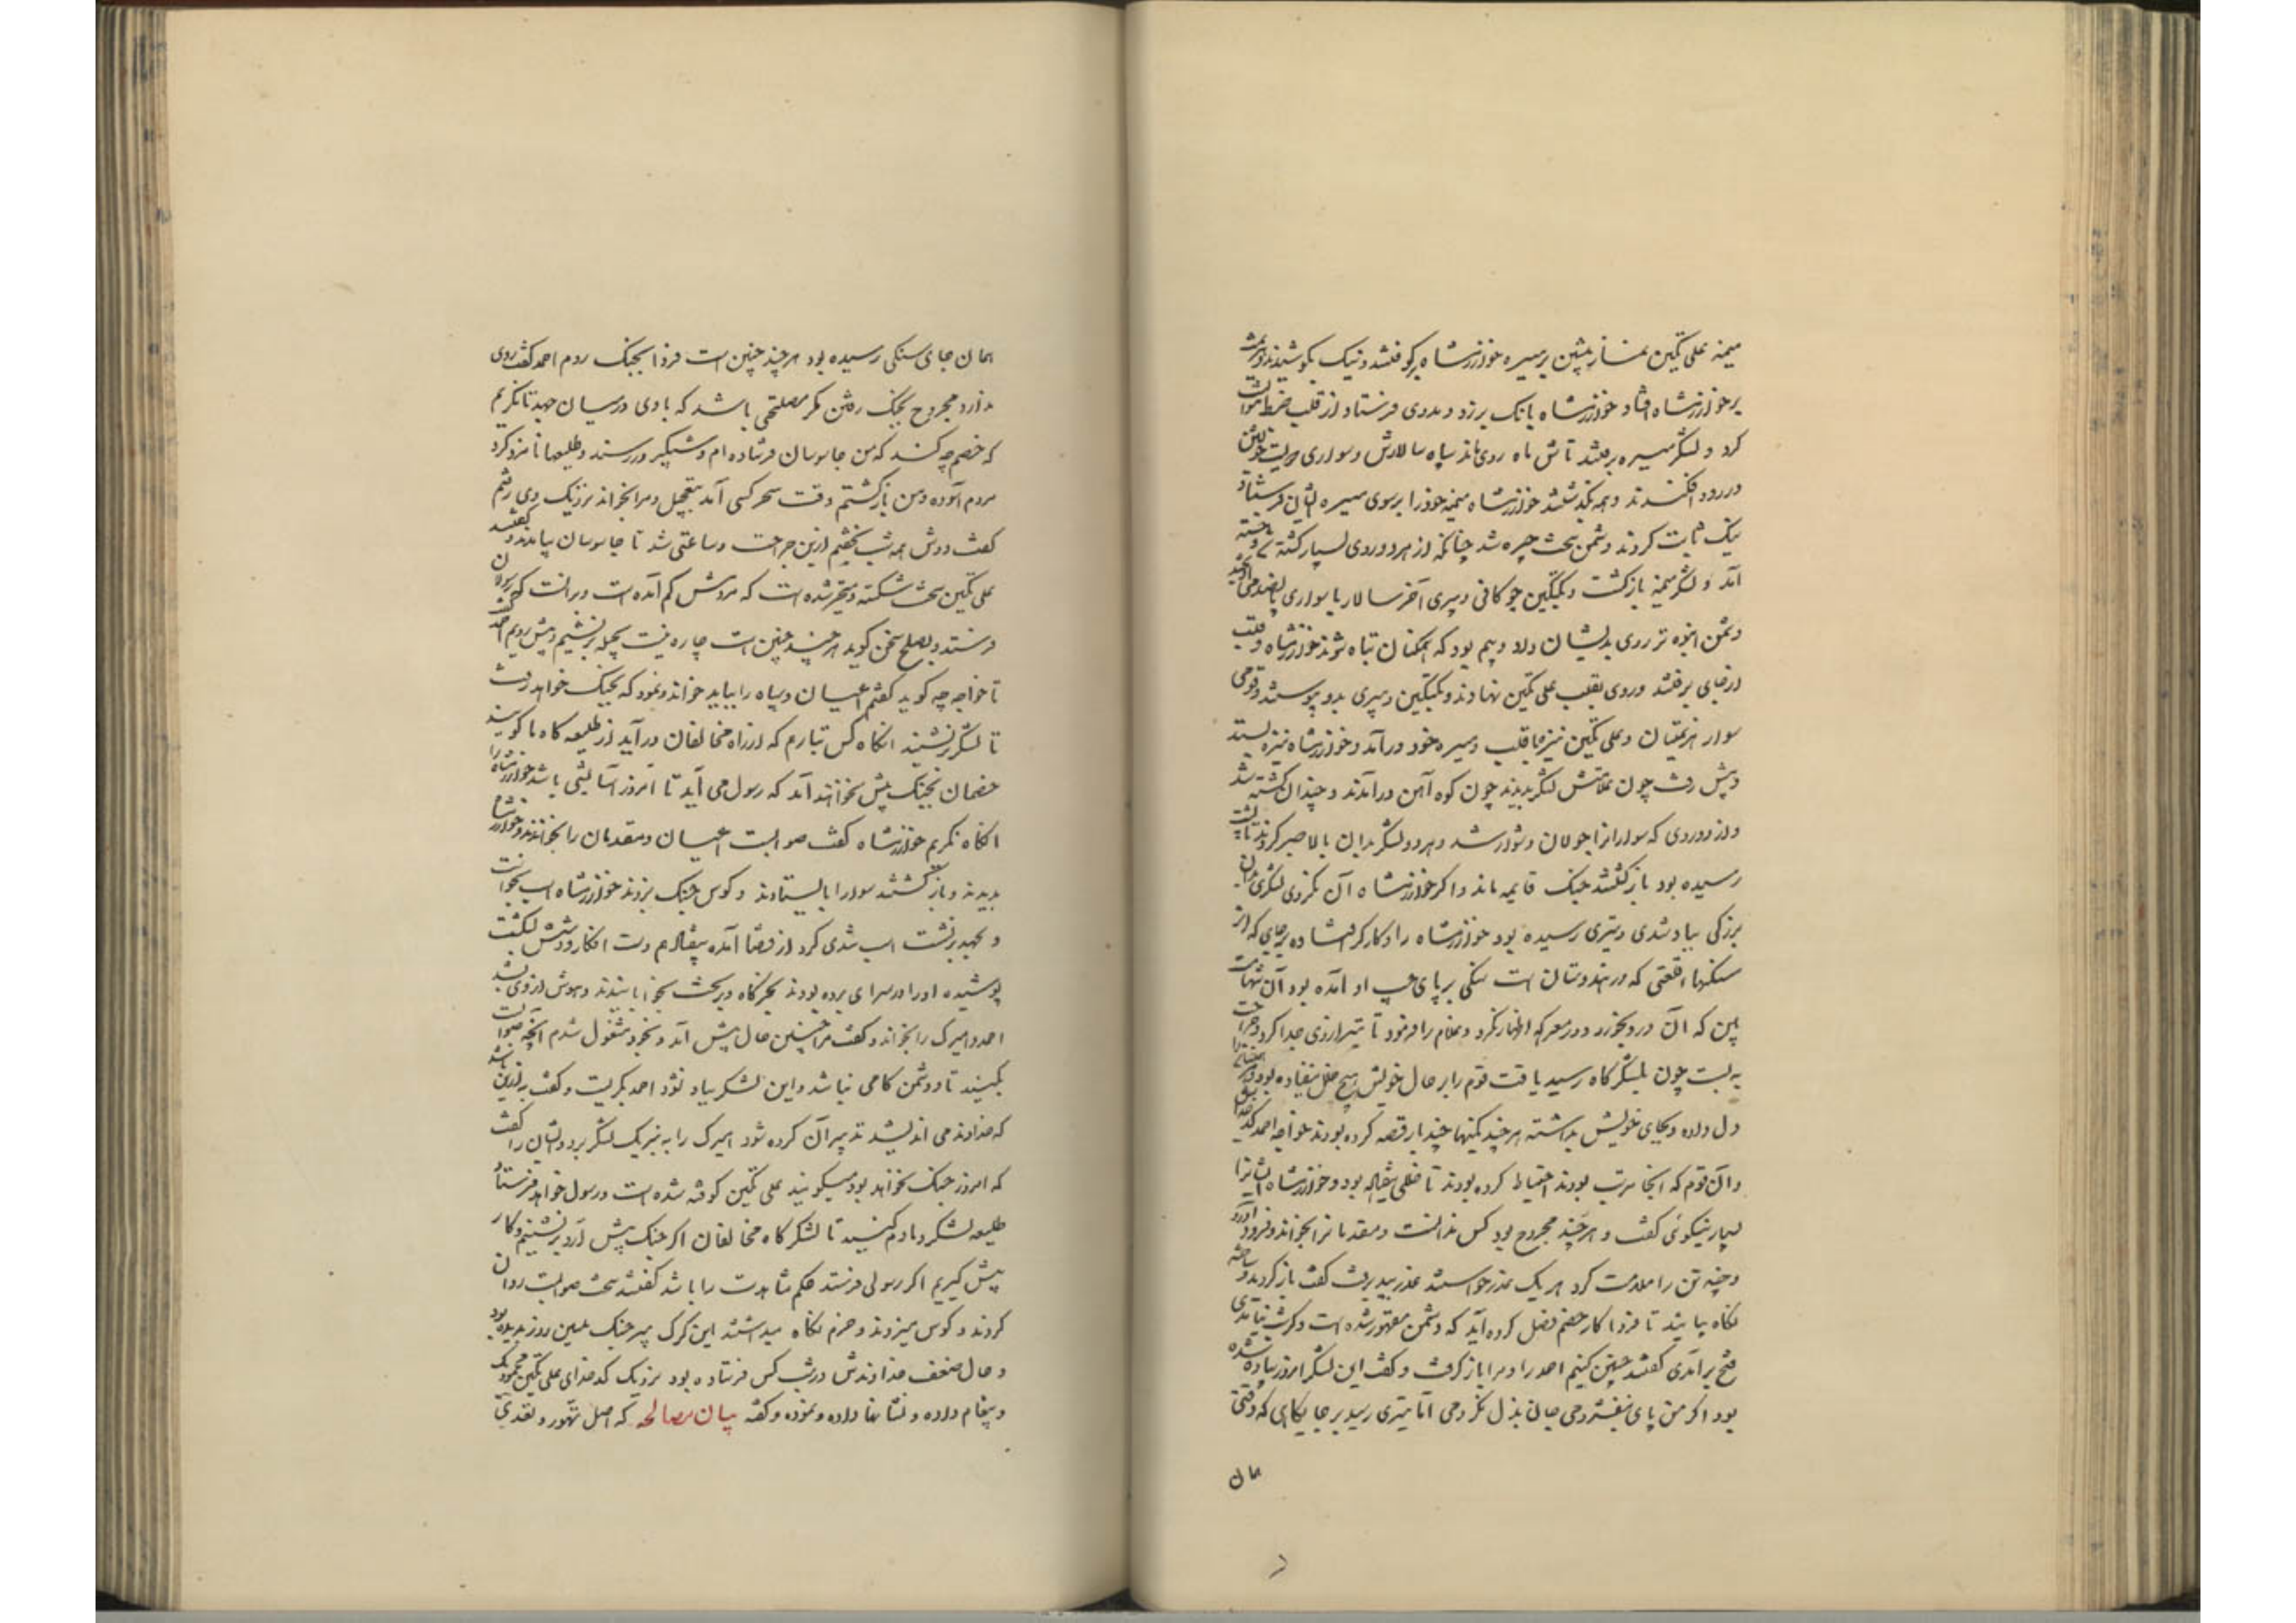 میمنه علی تکین نماز پیشین بر میسره خوارزمشاه بر کوفتند و نیک بکوشیدند و هزیمت
بر خوارزمشاه افتاد خوارزمشاه بانک برزد و مددی فرستاد از قلب ضبط نتوانست
کرد و لشکر میسره برفتند تاش ماه روی ماند سپاه سالارش و سواری دویست خویشتن
در رود افکندند و همه بکذشتند خوارزمشاه میمنه خود را بر سوی میسره ایشان فرستاد
نیک ثبات کردند دشمن سخت چیره شد چنانکه از هر دو روی بسیار کشته و خسته
آمد و لشکر میمنه بازکشت و بکتکین چوکانی و پیری آخر سالار با سواری پانصد می
دشمن انبوه تر روی بدیشان داد و بیم بود که همکنان تباه شوند خوارزمشاه و قلب
از جای برفتند و روی بقلب علی تکین نهادند و بکتکین و پیری بدو پیوستند و قومی
سوار هزیمتیان و علی تکین نیز با قلب و میسره خود درآمد و خوارزمشاه نیزه بستد
و پیش رفت چون علامتش لشکر بدیدند چون کوه آهن درآمدند و چندان کشته شد
و از دو روی که سواران را جولان دشوار شد و هر دو لشکر بدان بلا صبر کردند تا شب
رسیده بود بازکشتند جنک قایمه ماند و اکر خوارزمشاه آن نکردی لشکری بدان
بزرکی بباد شدی و تیری رسیده بود خوارزمشاه را و کارکر افتاده بر جای که از
سنکهای قلعتی که در هندوستان است سنکی بر پای چپ او آمده بود آن شهامت
بین که آن درد بخورد و در معرکه اظهار نکرد و غلام را فرمود تا تیر از وی جدا کرد و جراحت
به بست چون بلشکرکاه رسید یافت قوم را بر حال خویش هیچ خلل نیفتاده بود
دل داده و بجای خویش بداشته هرچند کمینها چند بار قصد کرده بودند خواجه احمد کدخدا
و آن قوم که آنجا مرتب بودند احتیاط کرده بودند تا خللی نیفتاده بود و خوارزمشاه ایشانرا
بسیار نیکوئی کفت و هرچند مجروح بود کس ندانست و مقدمانرا بخواند و فرود آورد
و چند تن را ملامت کرد هر یک عذر خواستند عذر بپذیرفت کفت بازکردید و ساخته
پکاه بیائید تا فردا کار خصم فصل کرده آید که دشمن مقهور شده است و اکر شب نیامدی
فتح بر آمدی کفتند چنین کنیم احمد را و مرا بازکرفت و کفت این لشکر امروز بباد شده
بود اکر من پای نیفشردمی و جان بذل نکردمی اما تیری رسید بر جایکاهی که وقتی
همان
همان جای سنکی رسیده بود هرچند چنین است فردا بجنک روم احمد کفت روی
ندارد مجروح بجنک رفتن مکر مصلحتی باشد که بادی در میان جهد تا نکریم
که خصم چه کند که من جاسوسان فرستاده ام و شبکیر دررسند و طلیعها نامزد کرد
مردم آسوده و من بازکشتم وقت سحر کسی آمد بتعجیل و مرا بخواند نزدیک وی رفتم
کفت دوش همه شب نخفتم ازین جراحت و ساعتی شد تا جاسوسان بیامدند و کفتند
علی تکین سخت شکسته و متحیر شده است که مردمش کم آمده است و بر آنست که رسولان
فرستد و بصلح سخن کوید هرچند چنین است چاره نیست بحیله برنشینیم و پیش رویم احمد کفت
تا خواجه چه کوید کفتم اعیان و سپاه را بباید خواند و نمود که بجنک خواهد رفت
تا لشکر برنشیند آنکاه کس بتازیم که از راه مخالفان درآید از طلیعه کاه تا کویند
خصمان بجنک پیش نخواهند آمد که رسول می آید تا امروز آسایشی باشد خوارزمشاه را
آنکاه نکریم خوارزمشاه کفت صوابست اعیان و مقدمان را بخواندند و خوارزمشاه را
بدیدند و بازکشتند سوارا بایستادند و کوس جنک بزدند خوارزمشاه اسب بخواست
و بجهد برنشست اسب تندی کرد از قضا آمده بیفتاد هم بر دست افکار و دستش بشکست
پوشیده او را در سرای پرده بودند بخرکاه و بر تخت بخوابانیدند و هوش از وی بشد
احمد و امیرک را بخواند و کفت مرا چنین حال پیش آمد و بخود مشغول شدم آنچه صوابست
بکنید تا دشمن کامی نباشد و این لشکر بباد نشود احمد بکریست و کفت به ازین باشد
که خداوند می اندیشد تدبیر آن کرده شود امیرک را به نزدیک لشکر برد و ایشان را کفت
که امروز جنک نخواهد بود میکویند علی تکین کوفته شده است و رسول خواهد فرستاد
طلیعه لشکر دمادم کنید تا لشکرکاه مخالفان اکر جنک پیش آرد برنشینیم و کار
پیش کیریم اکر رسولی فرستد حکم مشاهدت را باشد کفتند سخت صوابست روان
کردند و کوس میزدند و حزم نکاه میداشتند این کرک پیر جنک همین روز بدیده بود
و حال ضعف خداوندش در شب کس فرستاده بود نزدیک کدخدای علی تکین محمود بک
و پیغام داده و نشانها داده و نموده و کفته بیان مصالحه که اصل تهور و تعدی